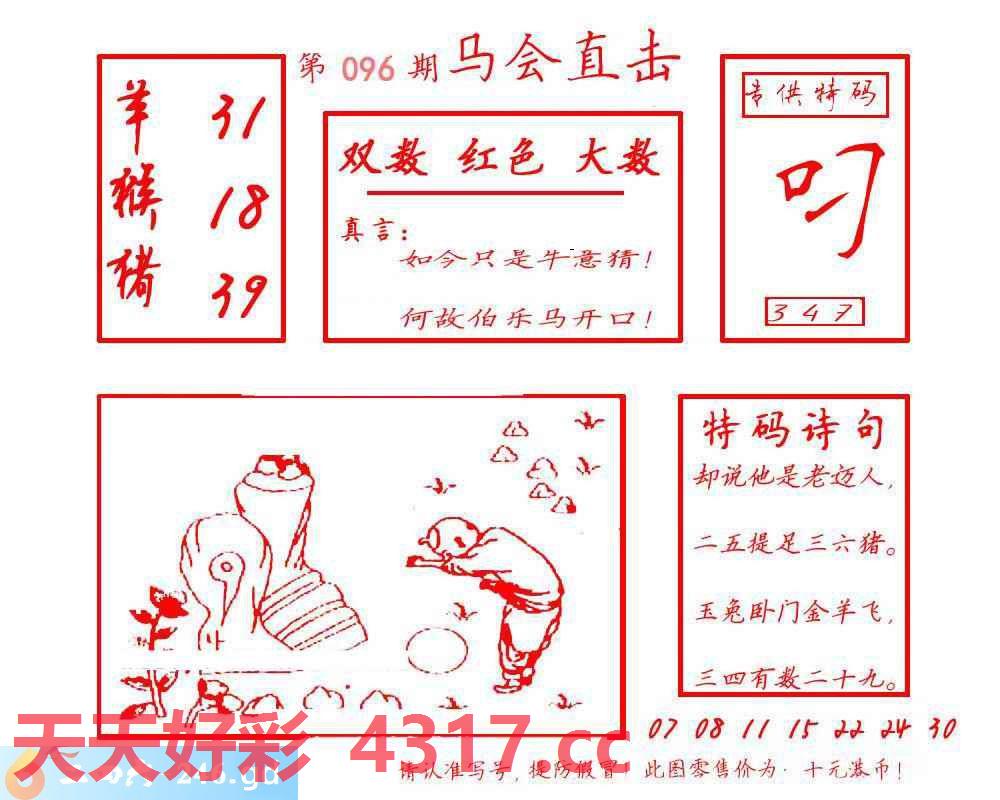 第 096 期 马会直击
羊 31
猴 18
猪 39
双数 红色 大数
真言：
如今只是牛意猜！
何故伯乐马开口！
专供特码
叼
3 4 7
特码诗句
却说他是老迈人，
二五提足三六猪。
玉兔卧门金羊飞，
三四有数二十九。
07 08 11 15 22 24 30
天天好彩 4317.cc
246.gd
请认准写号，提防假冒 此图零售价为·十元港币！